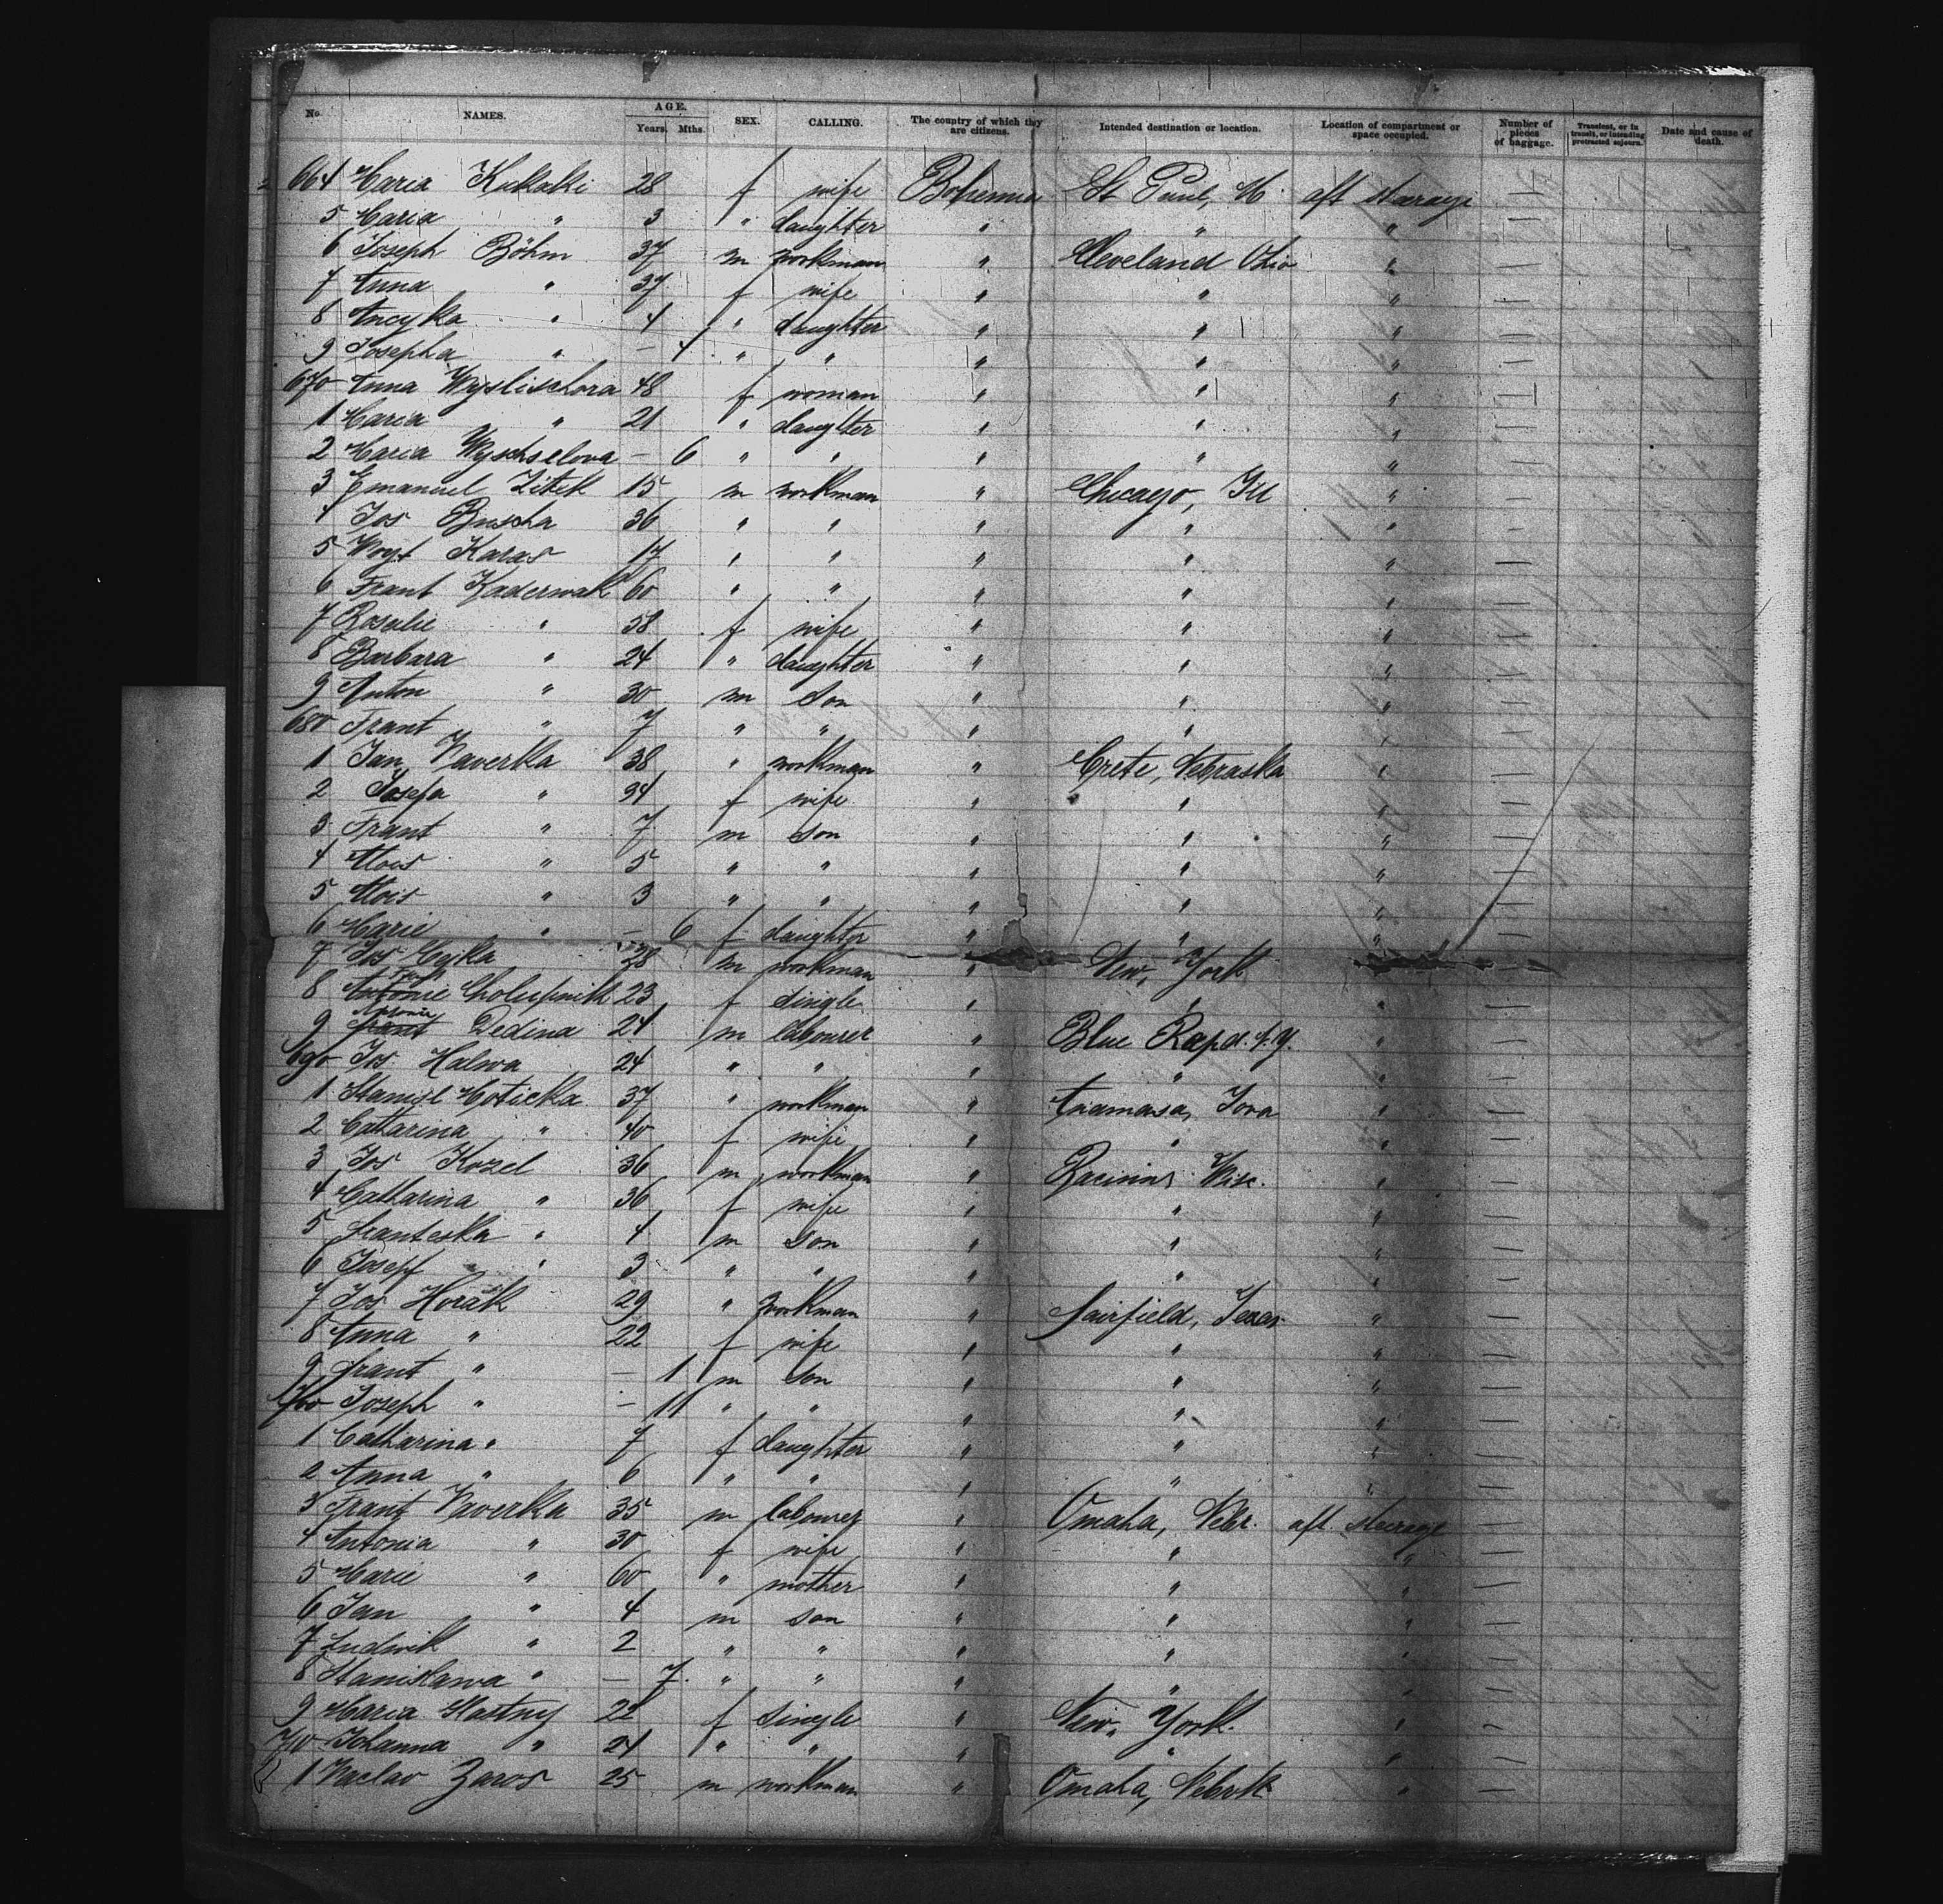 No. NAMES. AGE. Years. Mths. SEX. CALLING. The country of which they are citizens. Intended destination or location. Location of compartment or space occupied. Number of pieces of baggage. Transient, or in transit, or intending protracted sojourn. Date and cause of death.
664 Maria Kukalki 28 f wife Bohemia St Paul, M. aft steerage |
5 Maria " 3 " daughter " " " |
6 Joseph Böhm 37 m workman " Cleveland Ohio " |
7 Anna " 37 f wife " " " |
8 Ancyka " 4 " daughter " " " |
9 Josepha " – " " " " " |
670 Anna Wyslischora 48 f woman " " " |
1 Maria " 21 " daughter " " " |
2 Maria Wyschselova – 6 " " " " " |
3 Emanuel Zitek 15 m workman " Chicago, Ill " |
4 Jos Buscha 36 " " " " " |
5 Woyt Karas 17 " " " " " |
6 Frant Kaderwak 60 " " " " " |
7 Rosalie " 58 f wife " " " |
8 Barbara " 24 " daughter " " " |
9 Anton " 30 m son " " " |
680 Frant " 7 " " " " " |
1 Jan Naverka 38 " workman " Crete, Nebraska " |
2 Josefa " 34 f wife " " " |
3 Frant " 7 m son " " " |
4 Alois " 5 " " " " " |
5 Alois " 3 " " " " " |
6 Marie " – 6 f daughter " " " |
7 Jos Cyka 28 m workman " New York " |
8 Cholupnik 23 f single " " " |
9 Dedina 24 m labourer " Blue Rapd. " |
690 Jos. Halwa 24 " " " " " |
1 Stanisl Motička 37 " workman " Anamosa, Iova " |
2 Catharina " 40 f wife " " " |
3 Jos Kozel 36 m workman " Racinne Wisc. " |
4 Catharina " 36 f wife " " " |
5 Franteska " 4 m son " " " |
6 Josepf " 3 " " " " " |
7 Jos Horák 29 " workman " Fairfield, Texas " |
8 Anna " 22 f wife " " " |
9 Frant " – 1 m son " " " |
700 Joseph " – 11 " " " " " |
1 Catharina " 7 f daughter " " " |
2 Anna " 6 " " " " " |
3 Frant Naverka 35 m labourer " Omaha, Nebr. aft. steerage |
4 Antonia " 30 f wife " " " |
5 Marie " 60 " mother " " " |
6 Jan " 4 m son " " " |
7 Ludwik " 2 " " " " " |
8 Stanislawa " – 7 " " " " " |
9 Maria Stastny 22 f single " New York. " |
710 Johanna " 24 " " " " " |
1 Vaclav Zaros 25 m workman " Omaha, Nebrk " |